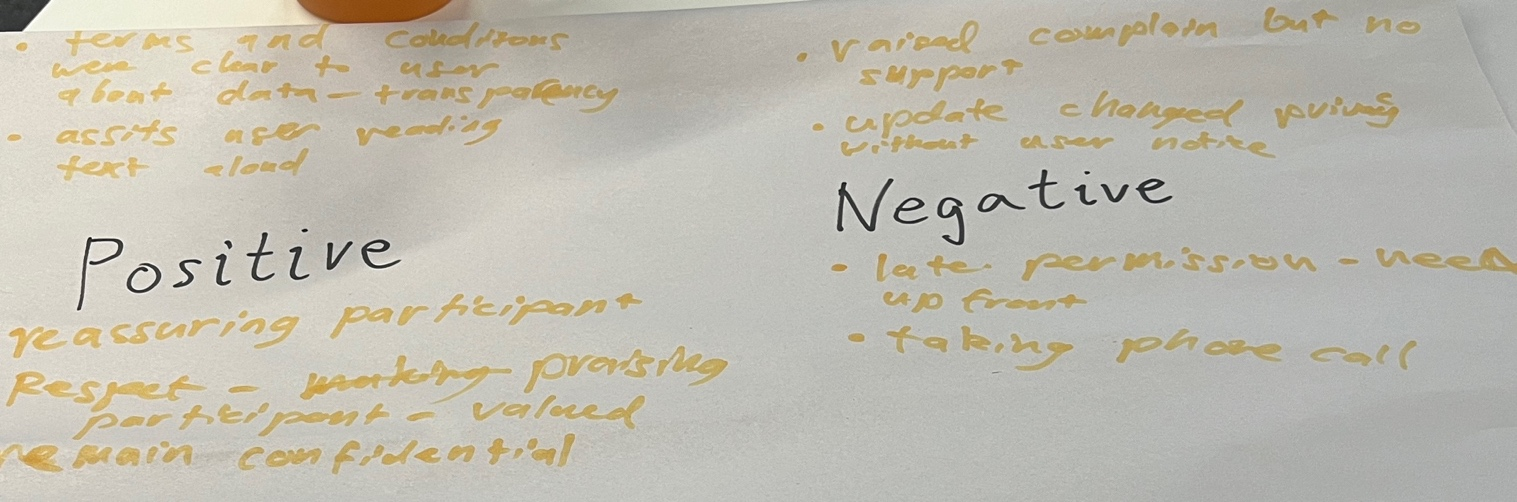 • terms and conditions
were clear to user
about data - transparency
• assits user reading
text aloud
Positive
reassuring participant
Respect - praising
participant - valued
remain confidential
• raised complain but no
support
• update changed pricing
without user notice
Negative
• late permission - need
up front
• taking phone call